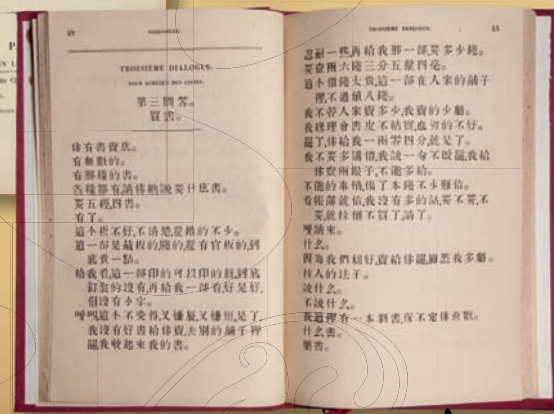 TROISIÈME DIALOGUE.
POUR ACHETER DES LIVRES.
第三問答。
買書。
你有書賣庅。
有無數的。
有那樣的書。
各樣都有請你納說要什庅書。
要五經,四書。
有了。
這个板不好,不清楚,差錯的不少。
這一部是藏板的賤的,還有官板的,到
底貴一點。
給我看,這一部印的可以印的眞,到底
釘裝的沒有,再給我一部看,好是好,
但沒有小字。
噯呀,這个不受得,又嫌厭,又嫌短,是了,
我沒有好書給你賣,去別的舖子裡
罷我收起來我的書。
TROISIÈME DIALOGUE.
忍耐一些再給我那一部要多少錢。
要壹兩六錢三分五氂四毫。
這个價錢太貴,這一部在人家的舖子
裡,不過値八錢。
我不管人家賣多少,我賣的少腦。
罷了,你給我一兩零四分,就是了。
我不要多講價,我說一句不敢謊,我給
你壹兩銀子,不能多給。
不能的事情,傷了本錢不少難信。
看賬簿就信,我沒有多的話,要不要,不
要,就拉倒不買了,請了。
噯請來。
什么。
拉人的法子。
說什么。
不說什么。
我這裡有一本斜書,保不定你喜歡。
什么書。
樂書。